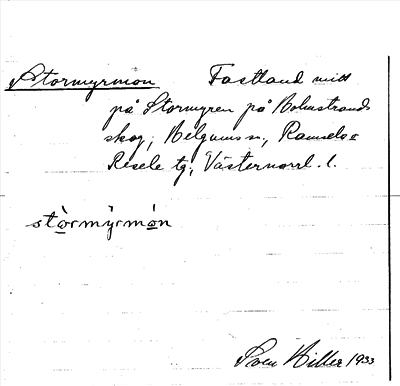 Stormyrmon Fastland mitt
på Stormyren på Holmstrands
skog, Helgums sn, Ramsele o
Resele tg, Västernorrl. l.
stòrmyrmón
Sven Hiller 1933